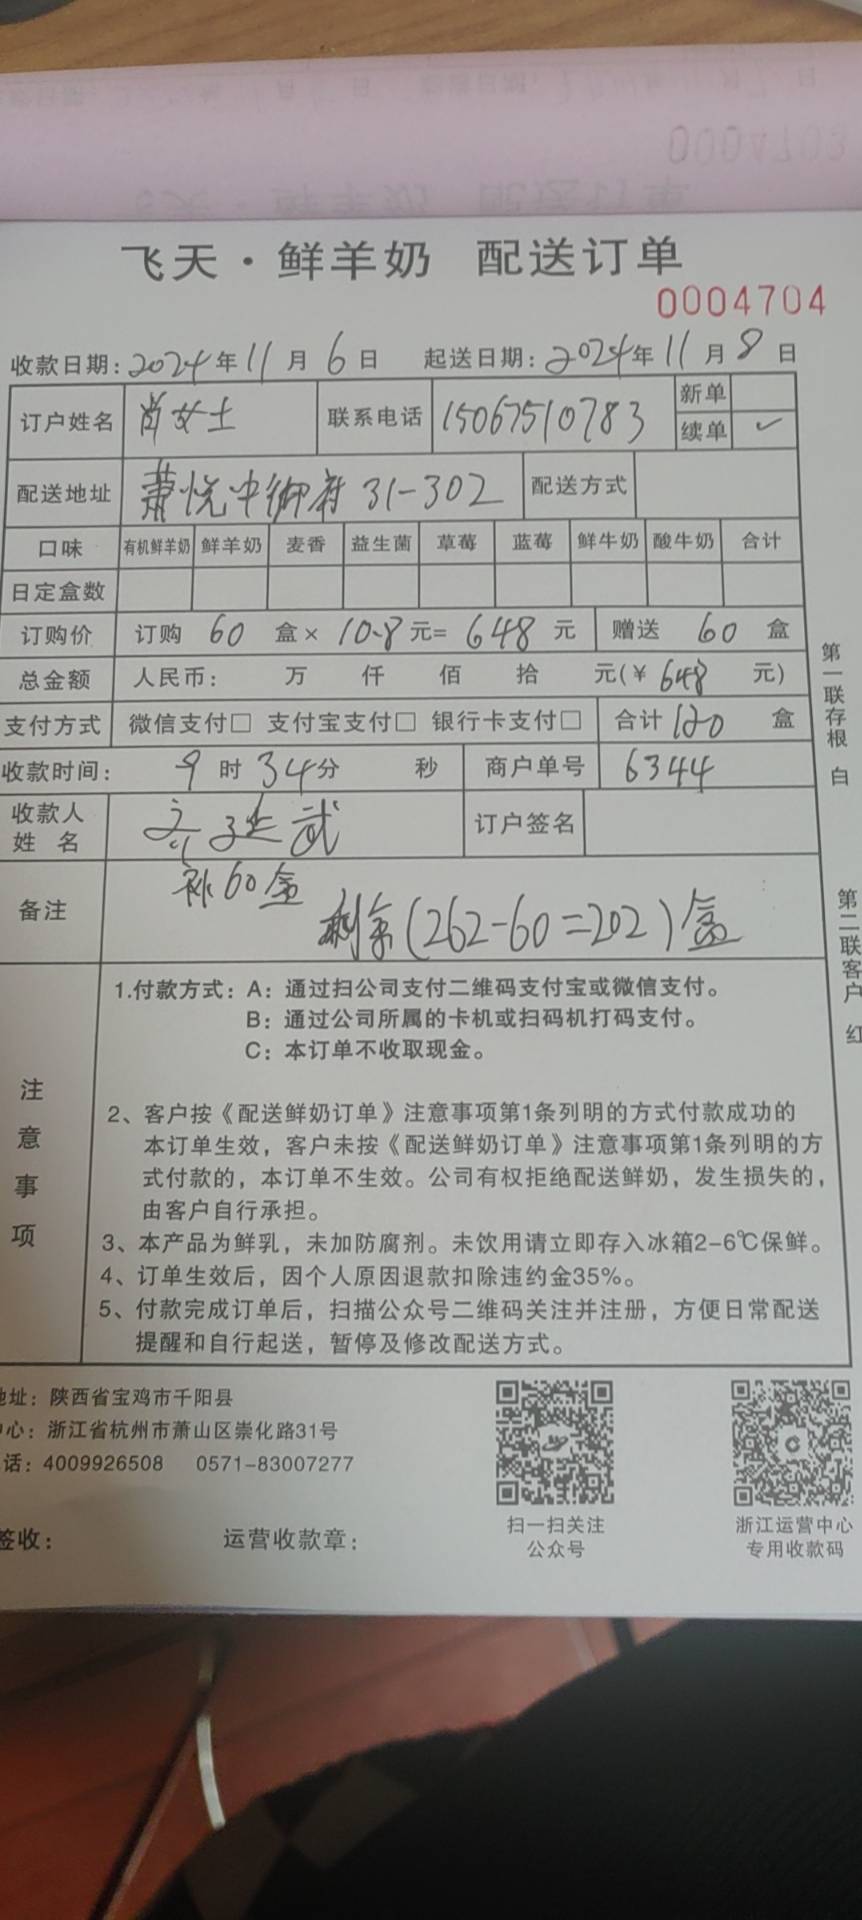 0004703
飞天·鲜羊奶 配送订单
0004704
收款日期:2024年11月6日 起送日期:2024年11月8日
订户姓名 肖女士 联系电话 15067510783 新单
续单 ✓
配送地址 萧悦中御府 31-302 配送方式
口味 有机鲜羊奶 鲜羊奶 麦香 益生菌 草莓 蓝莓 鲜牛奶 酸牛奶 合计
日定盒数
订购价 订购 60 盒× 10.8元= 648 元 赠送 60 盒
总金额 人民币: 万 仟 佰 拾 元(¥ 648 元)
支付方式 微信支付□ 支付宝支付□ 银行卡支付□ 合计 120 盒
收款时间: 9 时 34分 秒 商户单号 6344
收款人
姓 名 订户签名
备注 补60盒
剩余(262-60=202)盒
注意事项
1.付款方式:A:通过扫公司支付二维码支付宝或微信支付。
B:通过公司所属的卡机或扫码机打码支付。
C:本订单不收取现金。
2、客户按《配送鲜奶订单》注意事项第1条列明的方式付款成功的
本订单生效,客户未按《配送鲜奶订单》注意事项第1条列明的方
式付款的,本订单不生效。公司有权拒绝配送鲜奶,发生损失的,
由客户自行承担。
3、本产品为鲜乳,未加防腐剂。未饮用请立即存入冰箱2-6℃保鲜。
4、订单生效后,因个人原因退款扣除违约金35%。
5、付款完成订单后,扫描公众号二维码关注并注册,方便日常配送
提醒和自行起送,暂停及修改配送方式。
第一联存根 白
第二联客户 红
地址:陕西省宝鸡市千阳县
中心:浙江省杭州市萧山区崇化路31号
话:4009926508 0571-83007277
扫一扫关注
公众号
浙江运营中心
专用收款码
签收: 运营收款章: